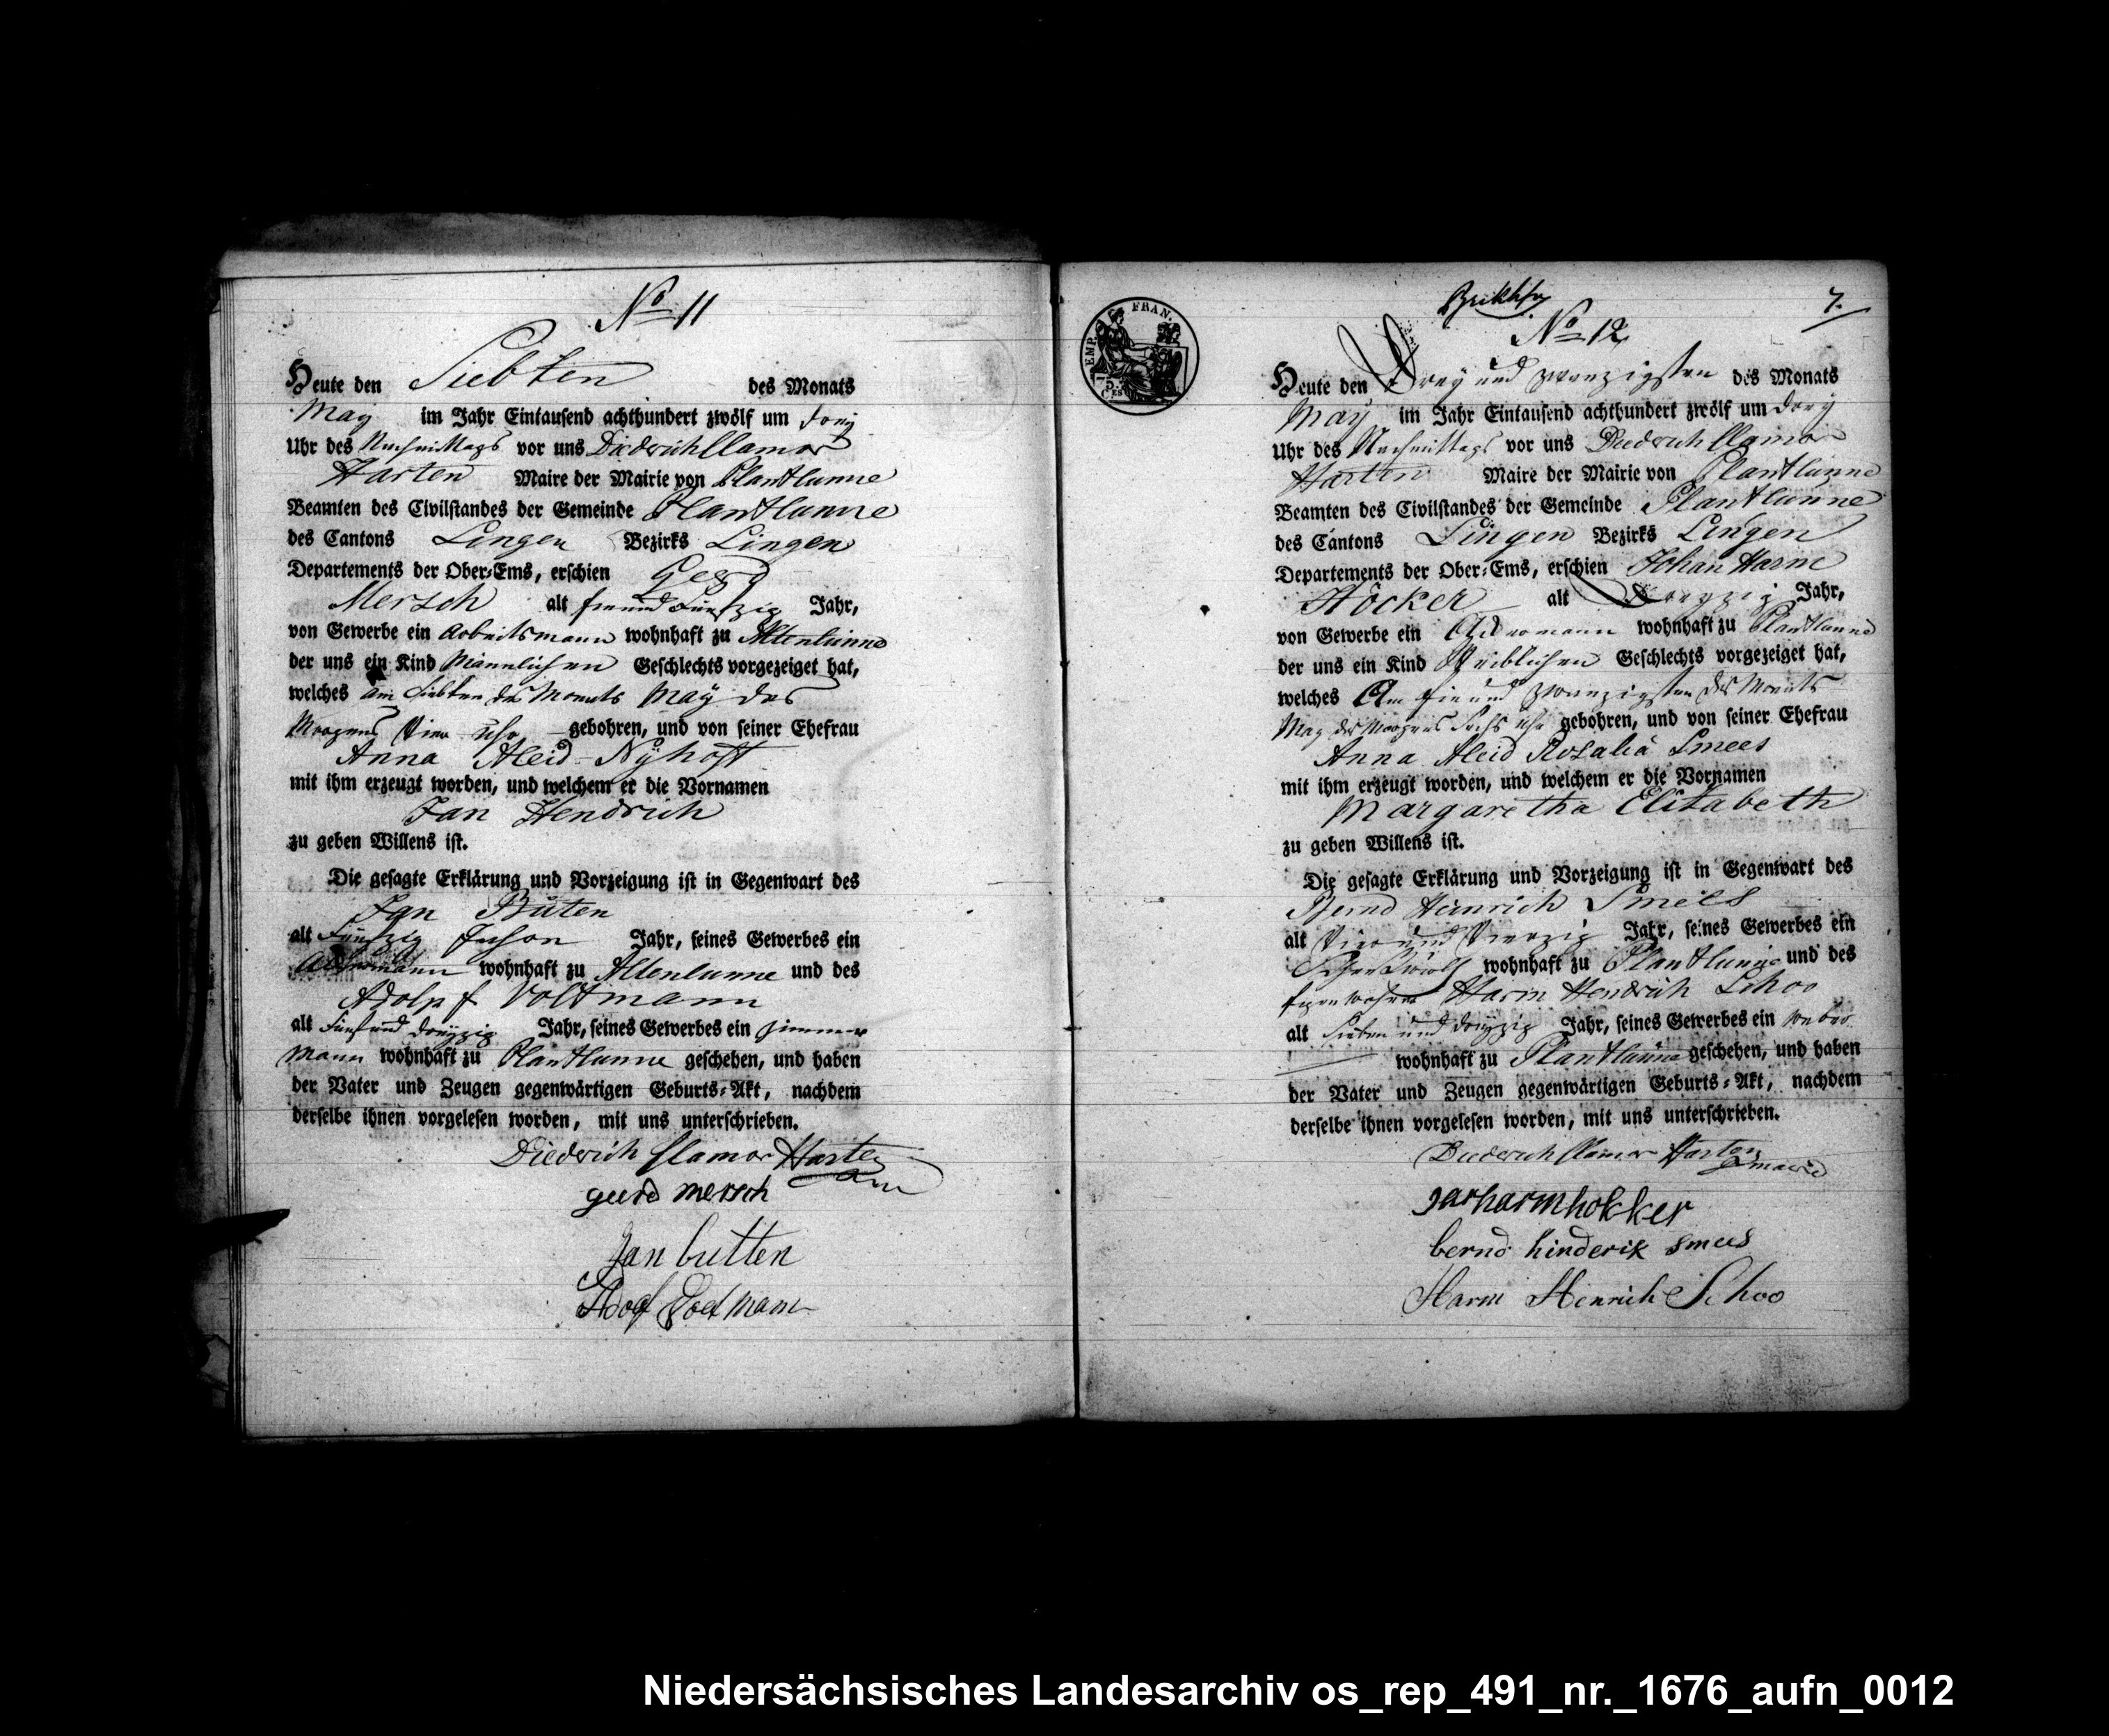 No 11
Heute den Siebten des Monats
May im Jahr Eintausend achthundert zwölf um drey
Uhr des Nachmittags vor uns Diedrich Clamor
Harten Maire der Mairie von Plantlünne
Beamten des Civilstandes der Gemeinde Plantlünne
des Cantons Lingen Bezirks Lingen
Departements der Ober-Ems, erschien Gerd
Mersch alt ein und Fünfzig Jahr,
von Gewerbe ein Arbeitsmann wohnhaft zu Altenlünne
der uns ein Kind Männlichen Geschlechts vorgezeiget hat,
welches am Siebten des Monats May des
Morgens Vier Uhr gebohren, und von seiner Ehefrau
Anna Aleid Nyhoff
mit ihm erzeugt worden, und welchem er die Vornamen
Jan Hendrich
zu geben Willens ist.
Die gesagte Erklärung und Vorzeigung ist in Gegenwart des
Jan Büten
alt Fünfzig Jahr, seines Gewerbes ein
Ackersmann wohnhaft zu Altenlünne und des
Adolpf Voltmann
alt Fünf und dreyzig Jahr, seines Gewerbes ein Zimmer
Mann wohnhaft zu Plantlünne geschehen, und haben
der Vater und Zeugen gegenwärtigen Geburts-Akt, nachdem
derselbe ihnen vorgelesen worden, mit uns unterschrieben.
Diedrich Clamor Harten
geerd mersch
Jan butten
Adolf Voetmann
EMP. FRAN.
75.
Ces
7.
No 12
Heute den Drey und zwanzigsten des Monats
May im Jahr Eintausend achthundert zwölf um drey
Uhr des Nachmittags vor uns Diedrich Clamor
Harten Maire der Mairie von Plantlünne
Beamten des Civilstandes der Gemeinde Plantlünne
des Cantons Lingen Bezirks Lingen
Departements der Ober-Ems, erschien Johan Harm
Höcker alt Dreyzig Jahr,
von Gewerbe ein Ackersmann wohnhaft zu Plantlünne
der uns ein Kind Weiblichen Geschlechts vorgezeiget hat,
welches Am ein und zwanzigsten des Monats
May des Morgens Sechs Uhr gebohren, und von seiner Ehefrau
Anna Aleid Rosalia Smees
mit ihm erzeugt worden, und welchem er die Vornamen
Margaretha Elizabeth
zu geben Willens ist.
Die gesagte Erklärung und Vorzeigung ist in Gegenwart des
Bernd Heinrich Smees
alt Vier und Vierzig Jahr, seines Gewerbes ein
wohnhaft zu Plantlünne und des
Harm Hendrich Schoo
alt Sieben und dreyzig Jahr, seines Gewerbes ein Weber
wohnhaft zu Plantlünne geschehen, und haben
der Vater und Zeugen gegenwärtigen Geburts-Akt, nachdem
derselbe ihnen vorgelesen worden, mit uns unterschrieben.
Diederich Clamor Harten
maire
janharmhokker
bernd hinderik smees
Harm Henrich Schoo
Niedersächsisches Landesarchiv os_rep_491_nr._1676_aufn_0012